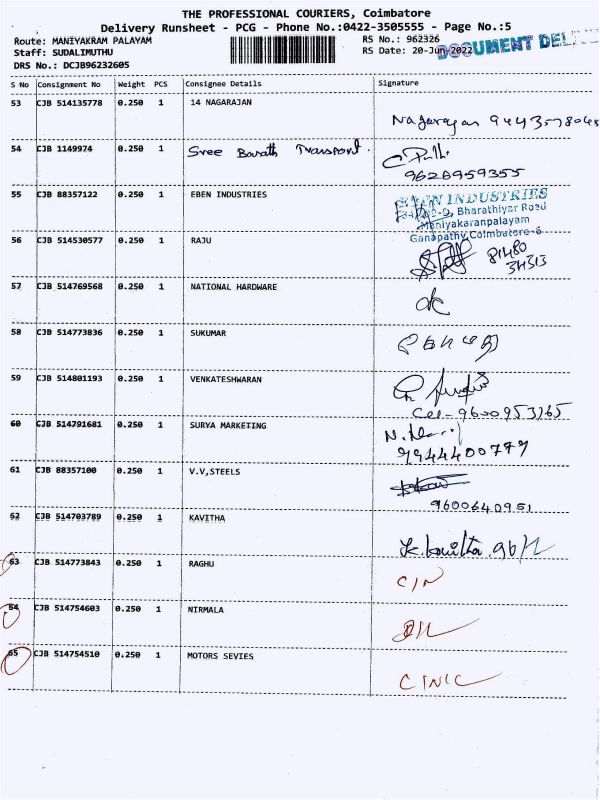 THE PROFESSIONAL COURIERS, Coimbatore
Delivery Runsheet - PCG - Phone No.:0422-3505555 - Page No.:5
Route: MANIYAKRAM PALAYAM
RS No.: 962326
Staff: SUDALIMUTHU
RS Date: 20-Jun-2022
DOCUMENT DEL
DRS No.: DCJB96232605
S No Consignment No Weight PCS Consignee Details Signature
53 CJB 514135778 0.250 1 14 NAGARAJAN
Nagarajan
54 CJB 1149974 0.250 1 Sree Barath Transport.
9626959355
55 CJB 88357122 0.250 1 EBEN INDUSTRIES
EBEN INDUSTRIES
Bharathiyar Road
Maniyakaranpalayam
Ganapathy, Coimbatore-6
56 CJB 514530577 0.250 1 RAJU
81480
34313
57 CJB 514769568 0.250 1 NATIONAL HARDWARE
58 CJB 514773836 0.250 1 SUKUMAR
59 CJB 514801193 0.250 1 VENKATESHWARAN
Cel-9600953265
60 CJB 514791681 0.250 1 SURYA MARKETING
9944400777
61 CJB 88357100 0.250 1 V.V,STEELS
9600640951
62 CJB 514703789 0.250 1 KAVITHA
k. kavitha.
63 CJB 514773843 0.250 1 RAGHU
C/N
64 CJB 514754603 0.250 1 NIRMALA
65 CJB 514754510 0.250 1 MOTORS SEVIES